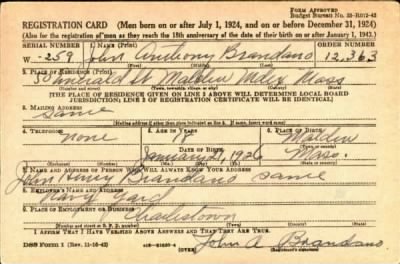 FORM APPROVED
Budget Bureau No. 33-R012-42
REGISTRATION CARD (Men born on or after July 1, 1924, and on or before December 31, 1924)
(Also for the registration of men as they reach the 18th anniversary of the date of their birth on or after January 1, 1943.)
SERIAL NUMBER 1. NAME (Print) ORDER NUMBER
W-259 John Anthony Brandano 12,363
2. PLACE OF RESIDENCE (Print)
St Malden Mdex Mass
[THE PLACE OF RESIDENCE GIVEN ON LINE 2 ABOVE WILL DETERMINE LOCAL BOARD
JURISDICTION; LINE 2 OF REGISTRATION CERTIFICATE WILL BE IDENTICAL]
3. MAILING ADDRESS
same
4. TELEPHONE 5. AGE IN YEARS 6. PLACE OF BIRTH
none 18 Malden
DATE OF BIRTH
January 21, 1926 Mass.
7. NAME AND ADDRESS OF PERSON WHO WILL ALWAYS KNOW YOUR ADDRESS
John Brandano same
8. EMPLOYER'S NAME AND ADDRESS
Navy Yard
9. PLACE OF EMPLOYMENT OR BUSINESS
Charlestown
I AFFIRM THAT I HAVE VERIFIED ABOVE ANSWERS AND THAT THEY ARE TRUE.
DSS Form 1 (Rev. 11-16-42) (OVER) John A Brandano